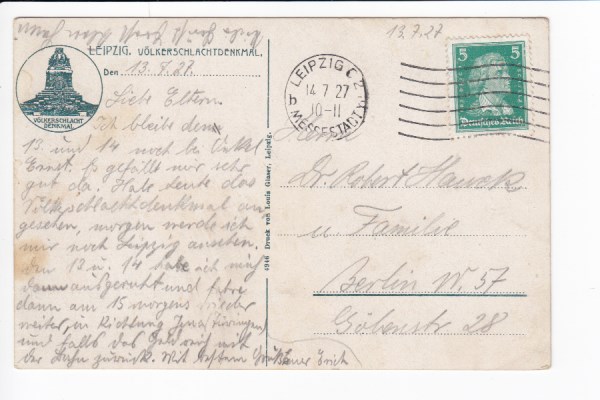 LEIPZIG. VÖLKERSCHLACHTDENKMAL.
Den 13.7.27.
VÖLKERSCHLACHT
DENKMAL
Liebe Eltern.
Ich bleibe den
13 und 14 noch bei Onkel
Ernst. Es gefällt mir sehr
gut da. Habe heute das
Völkschlachtdenkmal an
gesehen, morgen werde ich
mir noch Leipzig ansehen.
den 13 u. 14 habe ich mich
dann ausgeruht und fahre
dann am 15 morgens wieder
weiter, in Richtung Jena
und falls das Geld reicht mit
der Bahn zurück. Mit bestem Erich
4946 Druck von Louis Glaser, Leipzig.
13.7.27
LEIPZIG C 2
14 7 27
10-11
b
MESSESTADT
5 5
Deutsches Reich
Herrn
Dr. Robert
u Familie
Berlin W. 57
Göbenstr 28